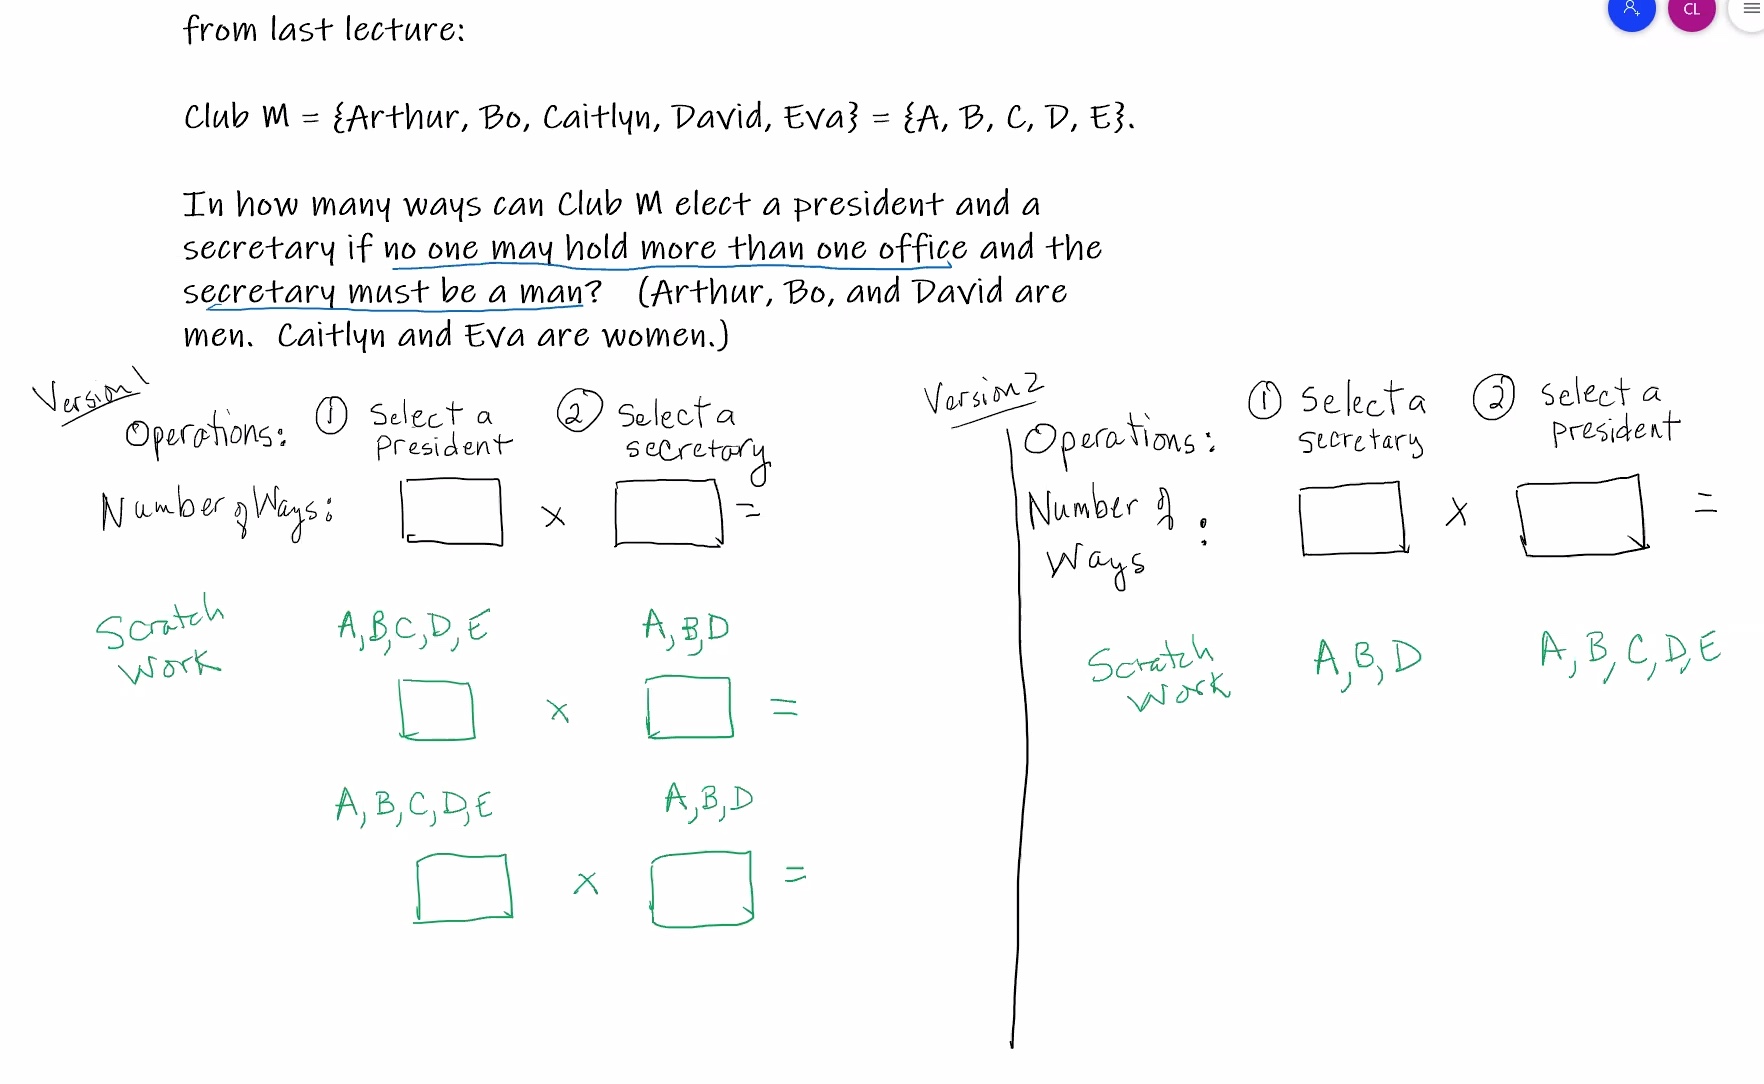 from last lecture:
CL
Club M = {Arthur, Bo, Caitlyn, David, Eva} = {A, B, C, D, E}.
In how many ways can Club M elect a president and a
secretary if no one may hold more than one office and the
secretary must be a man? (Arthur, Bo, and David are
men. Caitlyn and Eva are women.)
Version 1
Operations: ① Select a President ② Select a secretary
Number of Ways: □ × □ =
Scratch Work
A,B,C,D,E A,B,D
□ × □ =
A,B,C,D,E A,B,D
□ × □ =
Version 2
Operations: ① Select a Secretary ② Select a President
Number of Ways : □ × □ =
Scratch Work
A,B,D A,B,C,D,E